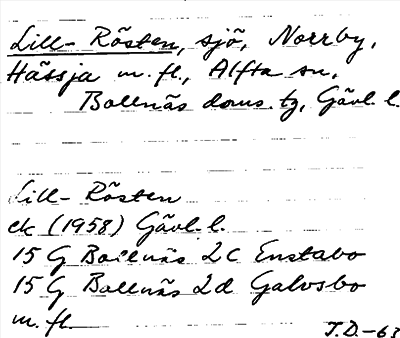 Lill-Rösten, sjö, Norrby,
Hässja m.fl., Alfta sn,
Bollnäs doms.tg, Gävl.l.
Lill-Rösten
ek (1958) Gävl.l.
15 G Bollnäs 2c Enstabo
15 G Bollnäs 2d Galvsbo
m.fl.
T.D.-63